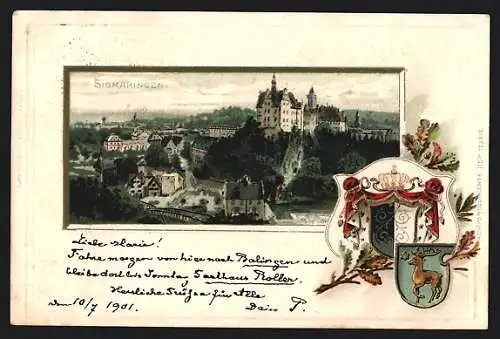 SIGMARINGEN.
Liebe Marie!
Fahre morgen von hier nach Balingen und
bleibe dort bis Sonntag Gasthaus Roller.
Herzliche Grüße für Alle
den 10/7 1901. Dein P.